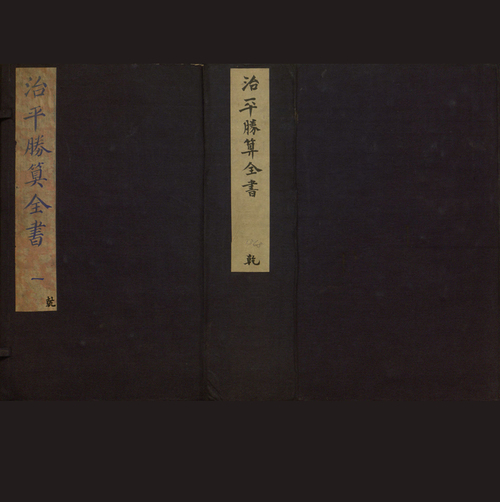 治平勝算全書
乾
治平勝算全書
一
乾